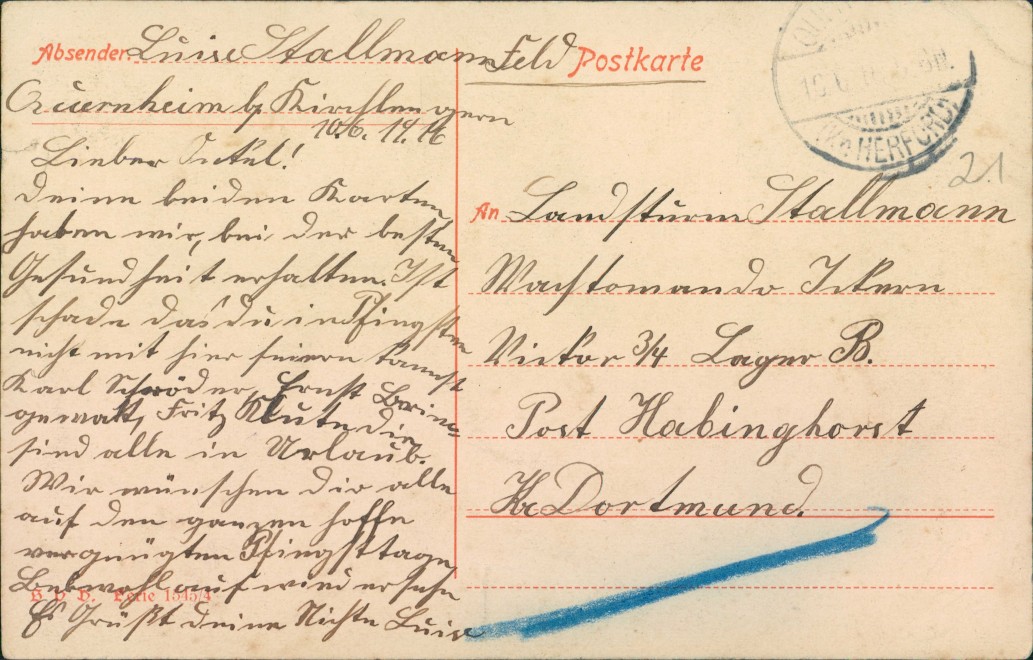 Absender: Luise Stallmann
Quernheim b. Kirchlengern
10.6. 1916
Lieber Onkel!
Deine beiden Karten
haben wir, bei der besten
Gesundheit erhalten. Ist
schade das du in Pfingsten
nicht mit hier feiern kannst
Karl Schröder, Ernst
Fritz Klute die
sind alle in Urlaub.
Wir wünschen dir alle
auf den ganzen hoffe
vergnügten Pfingsttage
Lebewohl auf wiedersehn
Es Grüßt deine Nichte Luise
S. V. D. Serie 1545/4
Feld Postkarte
HERFORD
21
An Landsturm Stallmann
Wachtomando Ickern
Victor 3/4 Lager B.
Post Habinghorst
Kr Dortmund.